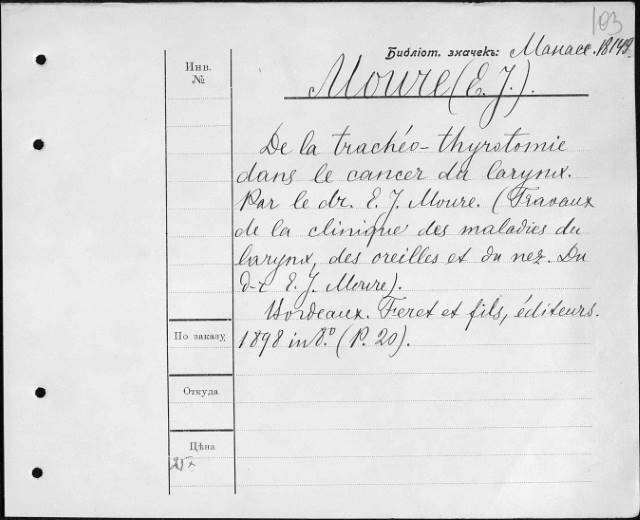 103
Библіот. значекъ: Манасе. 18149.
Инв. №
Moure (E. J.).
De la trachéo-thyrotomie
dans le cancer du larynx.
Par le dr. E. J. Moure. (Travaux
de la clinique des maladies du
larynx, des oreilles et du nez. Du
d-r E. J. Moure).
Bordeaux. Feret et fils, éditeurs.
По заказу
1898 in 8.º (P. 20).
Откуда
Цѣна